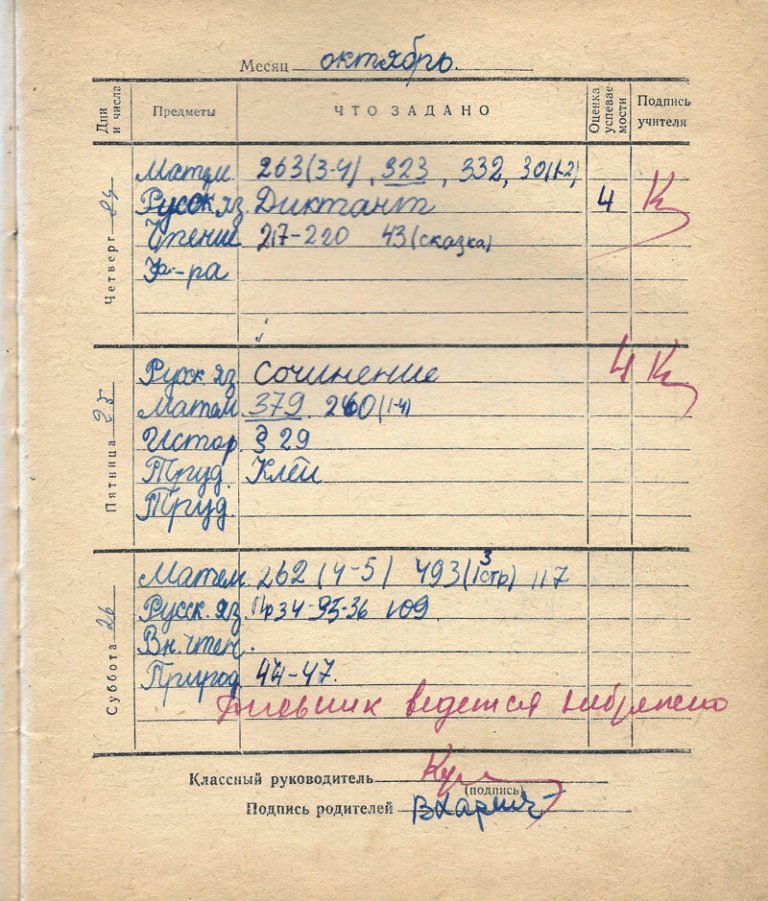 Месяц октябрь.
Дни и числа Предметы ЧТО ЗАДАНО Оценка успевае-мости Подпись учителя
Четверг 24
Матем 263(3-4), 323, 332, 30(1-2)
Русск яз. Диктант 4
Чтение 217-220 43(сказка)
Ф-ра
Пятница 25
Русск яз. Сочинение 4
Матем 379. 260(1-4)
Истор. § 29
Труд. Клей
Труд.
Суббота 26
Матем. 262 (4-5) 493(1 3 стр) 117
Русск. яз. 109
Вн. чтен.
Природ 44-47.
Дневник ведется небрежно
Классный руководитель
(подпись)
Подпись родителей